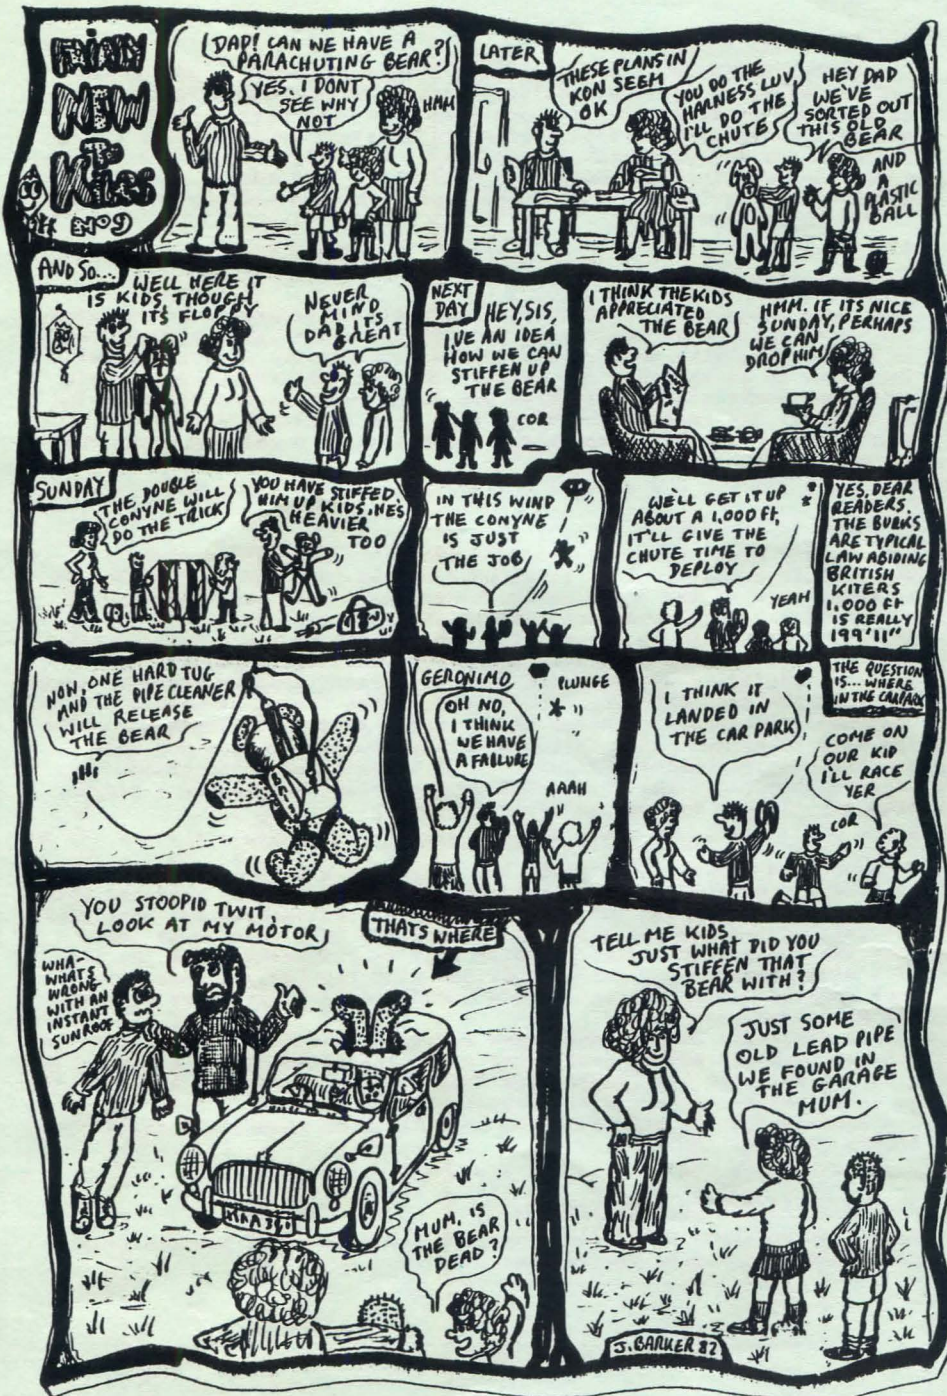 FAIRLY
NEW
To
Kites
No 9
DAD! CAN WE HAVE A
PARACHUTING BEAR?
YES. I DONT
SEE WHY
NOT
HMM
LATER
THESE PLANS IN
KON SEEM
OK
YOU DO THE
HARNESS LUV
I'LL DO THE
CHUTE
HEY DAD
WE'VE
SORTED OUT
THIS OLD
BEAR
AND
A
PLASTIC
BALL
AND SO...
WELL HERE IT
IS KIDS, THOUGH
IT'S FLOPPY
NEVER
MIND
DAD IT'S
GREAT
NEXT
DAY
HEY, SIS,
I'VE AN IDEA
HOW WE CAN
STIFFEN UP
THE BEAR
COR
I THINK THE KIDS
APPRECIATED
THE BEAR
HMM. IF ITS NICE
SUNDAY, PERHAPS
WE CAN
DROP HIM
SUNDAY
THE DOUBLE
CONYNE WILL
DO THE TRICK
YOU HAVE STIFFED
HIM UP KIDS, HE'S
HEAVIER
TOO
IN THIS WIND
THE CONYNE
IS JUST
THE JOB
WE'LL GET IT UP
ABOUT A 1,000 FT,
IT'LL GIVE THE
CHUTE TIME TO
DEPLOY
YEAH
YES, DEAR
READERS.
THE BURKS
ARE TYPICAL
LAW ABIDING
BRITISH
KITERS
1,000 FT
IS REALLY
199'11"
NOW, ONE HARD TUG
AND THE PIPE CLEANER
WILL RELEASE
THE BEAR
GERONIMO
PLUNGE
OH NO,
I THINK
WE HAVE
A FAILURE
AAAH
I THINK IT
LANDED IN
THE CAR PARK
THE QUESTION
IS... WHERE
IN THE CARPARK
COME ON
OUR KID
I'LL RACE
YER
COR
YOU STOOPID TWIT,
LOOK AT MY MOTOR!
THATS WHERE
WHA-
WHATS
WRONG
WITH AN
INSTANT
SUNROOF
MUM, IS
THE BEAR
DEAD?
TELL ME KIDS
JUST WHAT DID YOU
STIFFEN THAT
BEAR WITH?
JUST SOME
OLD LEAD PIPE
WE FOUND IN
THE GARAGE
MUM.
J. BARKER 82